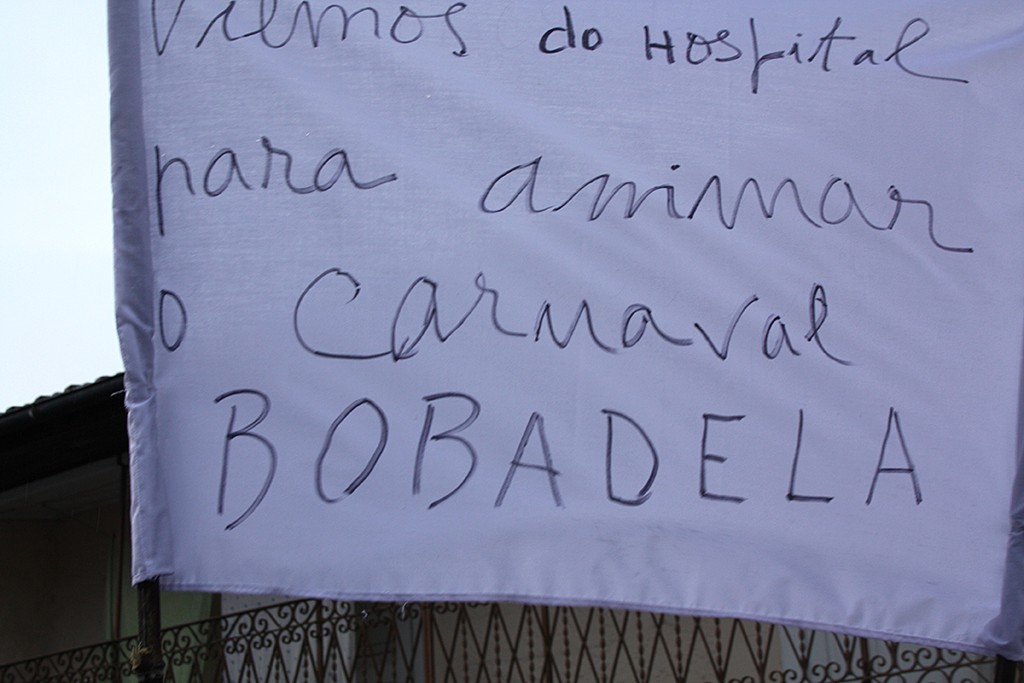 Viemos do Hospital
para animar
o Carnaval
BOBADELA